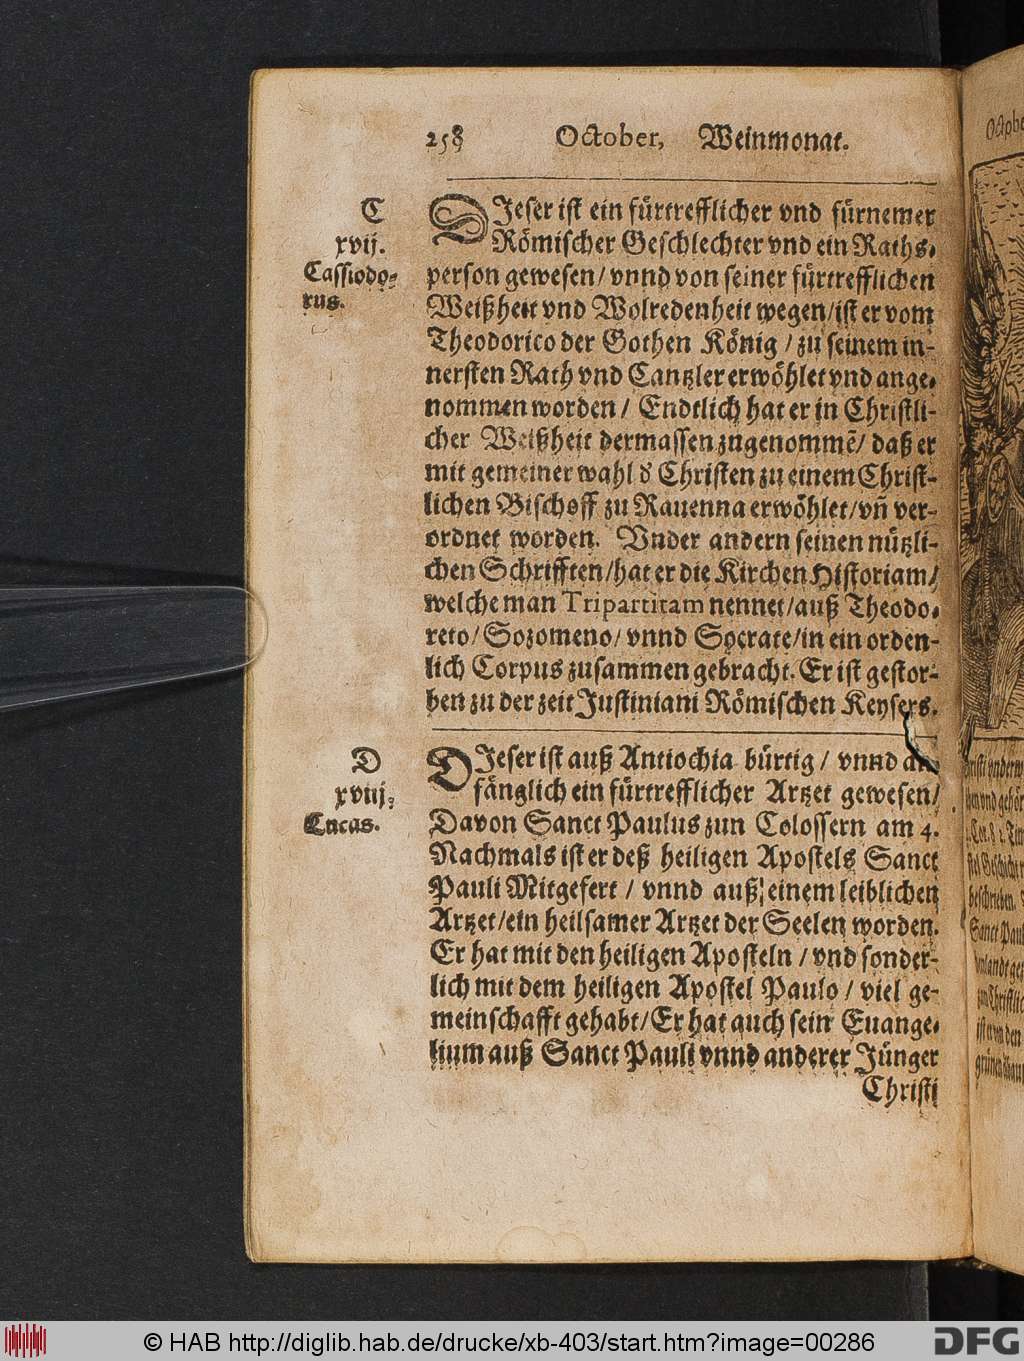 258 October, Weinmonat.
C
xvij.
Cassiodo-
rus.
DIeser ist ein fürtrefflicher vnd fürnemer
Römischer Geschlechter vnd ein Raths-
person gewesen/ vnnd von seiner fürtrefflichen
Weißheit vnd Wolredenheit wegen/ist er vom
Theodorico der Gothen König / zu seinem in-
nersten Rath vnd Cantzler erwöhlet vnd ange-
nommen worden / Endtlich hat er in Christli-
cher Weißheit dermassen zugenommẽ/ daß er
mit gemeiner wahl ď Christen zu einem Christ-
lichen Bischoff zu Rauenna erwöhlet/vñ ver-
ordnet worden. Vnder andern seinen nützli-
chen Schrifften/hat er die Kirchen Historiam/
welche man Tripartitam nennet/auß Theodo-
reto/ Sozomeno/ vnnd Socrate/in ein orden-
lich Corpus zusammen gebracht. Er ist gestor-
ben zu der zeit Justiniani Römischen Keysers.
D
xviij.
Lucas.
DIeser ist auß Antiochia bürtig / vnnd an-
fänglich ein fürtrefflicher Artzet gewesen/
Davon Sanct Paulus zun Colossern am 4.
Nachmals ist er deß heiligen Apostels Sanct
Pauli Mitgefert / vnnd auß einem leiblichen
Artzet/ein heilsamer Artzet der Seelen worden.
Er hat mit den heiligen Aposteln / vnd sonder-
lich mit dem heiligen Apostel Paulo / viel ge-
meinschafft gehabt/Er hat auch sein Euange-
lium auß Sanct Pauli vnnd anderer Jünger
Christi
© HAB http://diglib.hab.de/drucke/xb-403/start.htm?image=00286
DFG